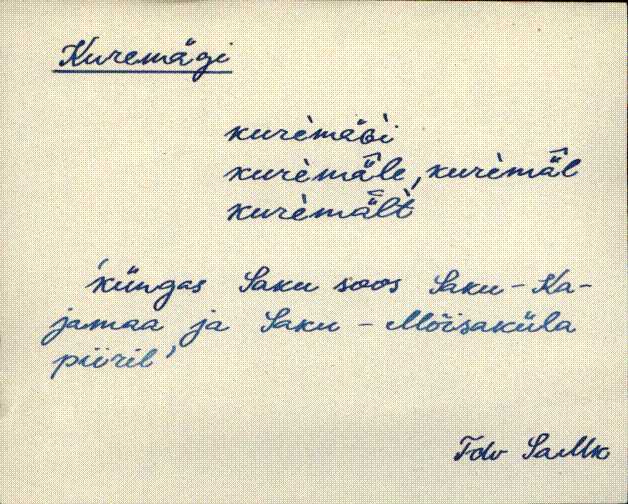 Kuremägi
kurèmäGi
kurèmä̂le, kurèmä̂l
kurèmä̂lt
'küngas Saku soos Saku-Ka-
jamaa ja Saku - Mõisaküla
piiril'